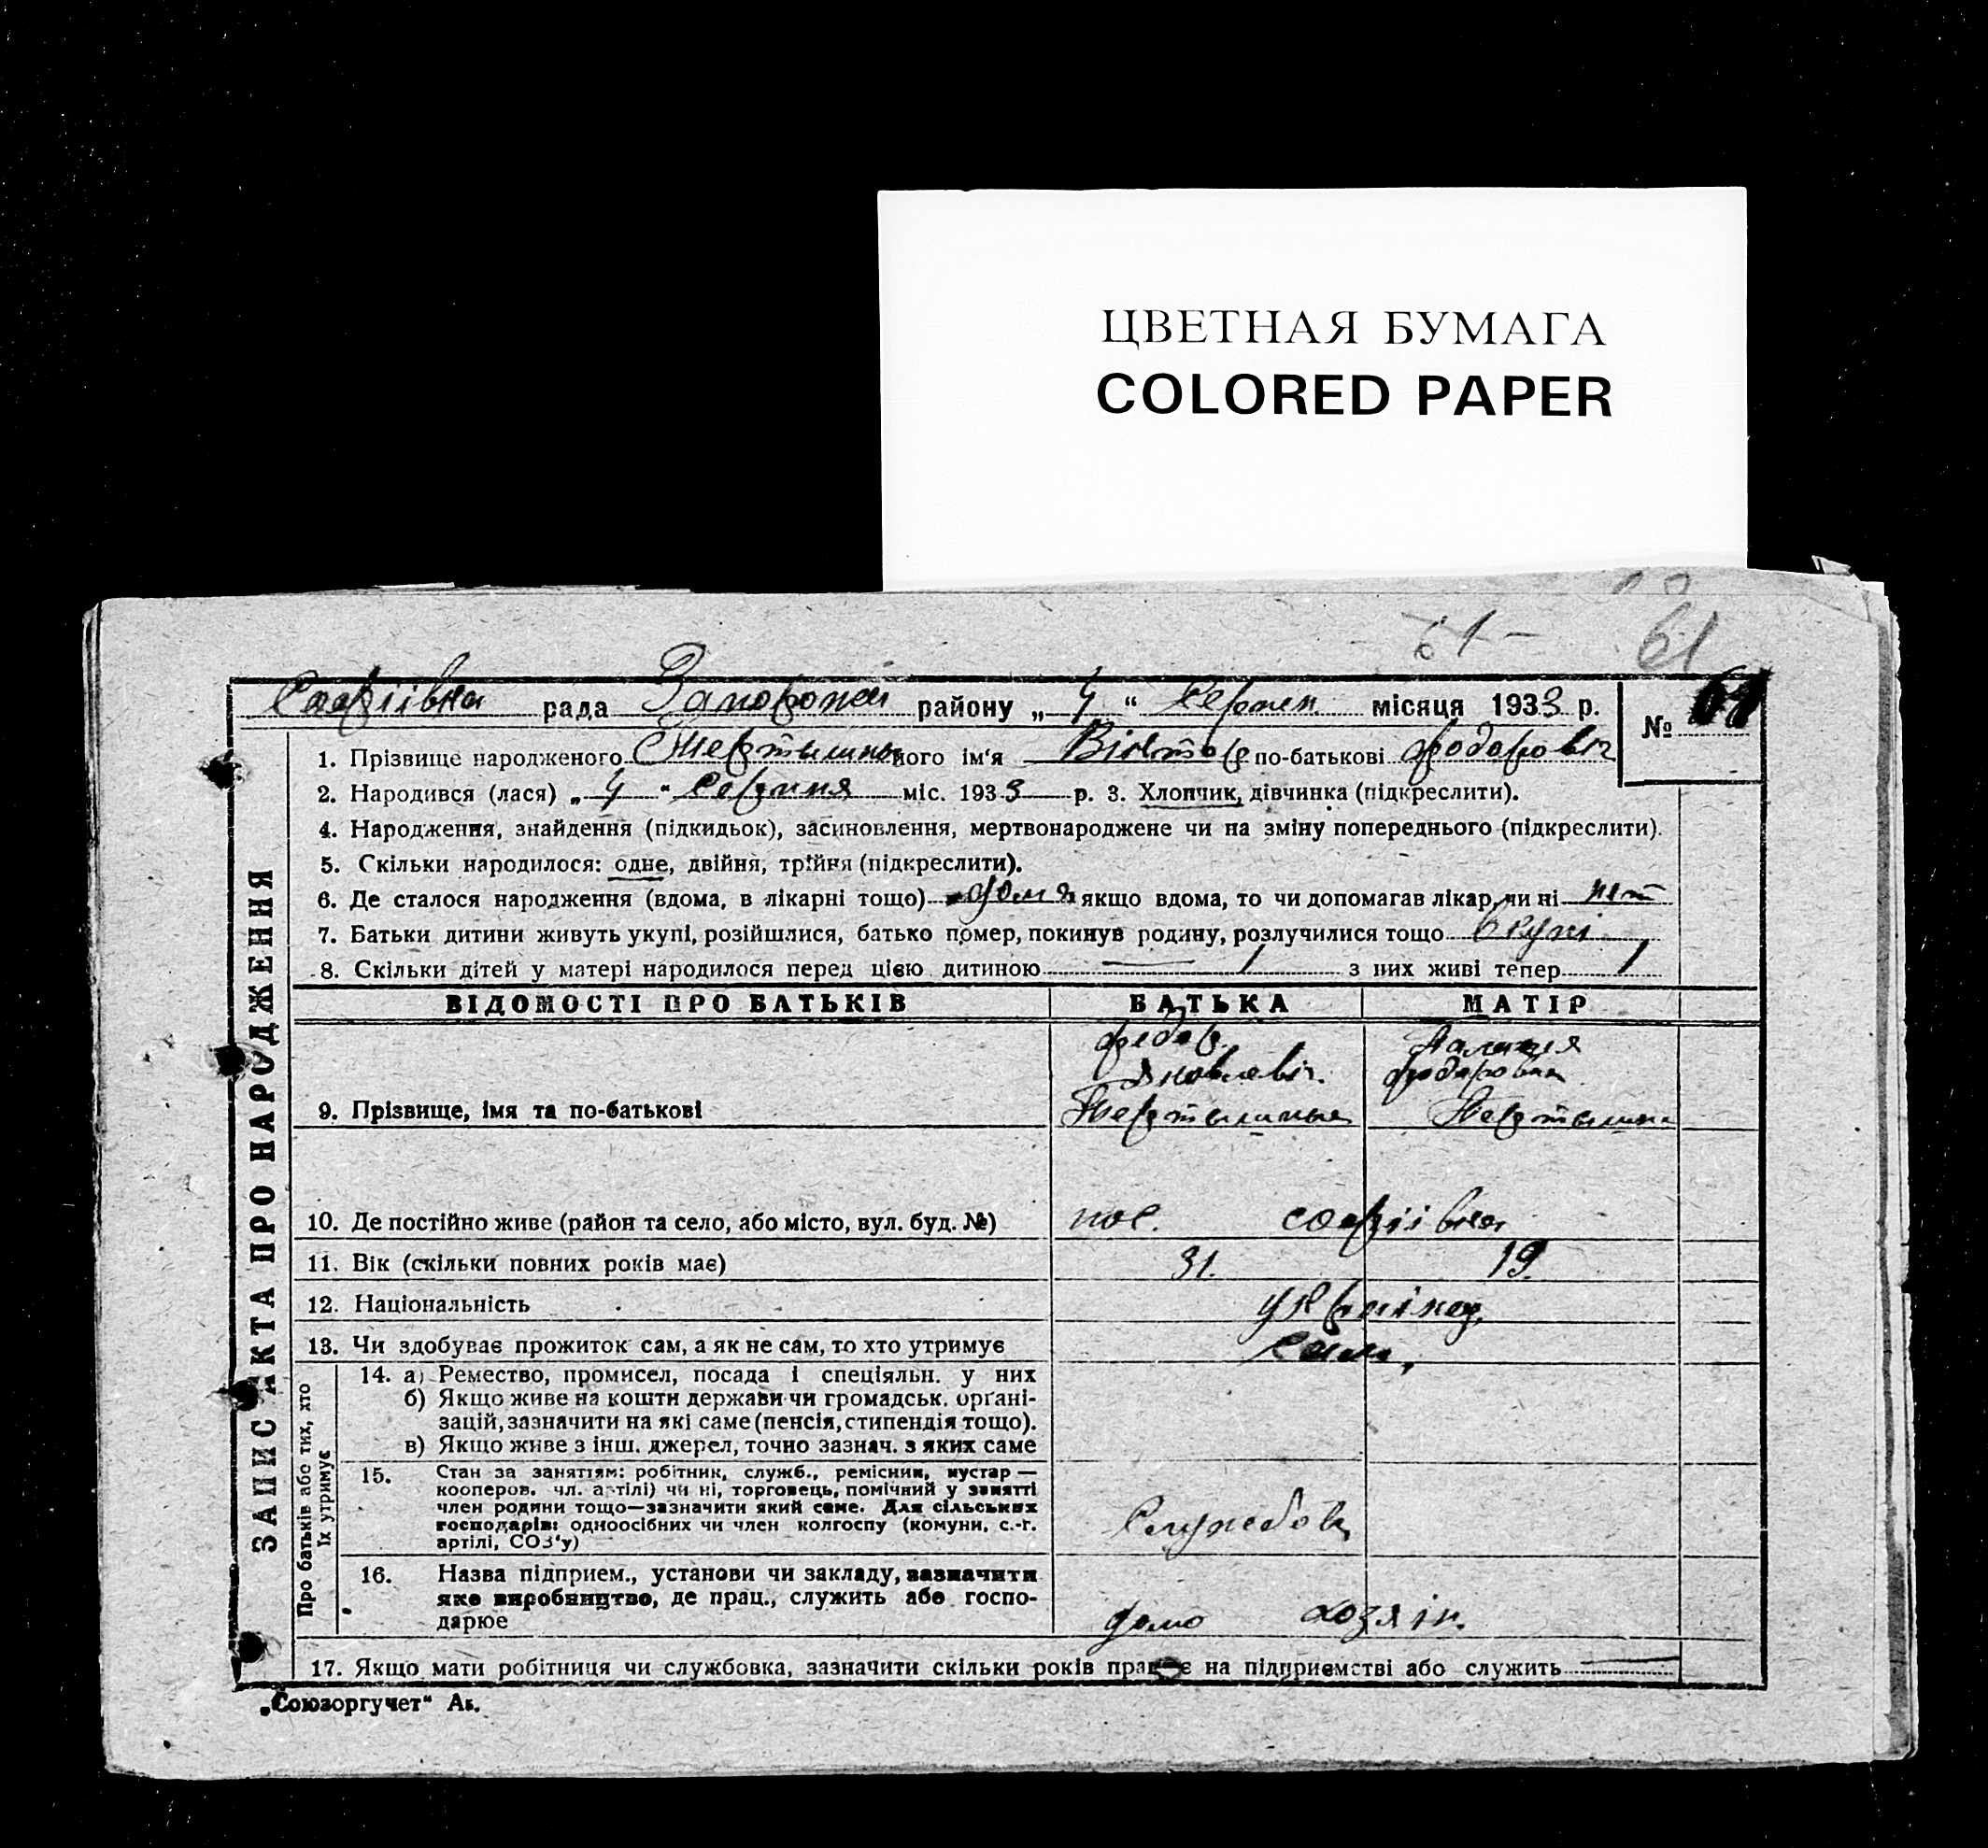 ЦВЕТНАЯ БУМАГА
COLORED PAPER
61
61
Софіівка рада Запорожя району „ 4 “ Серпен місяця 1933 р.
№ 61
1. Прізвище народженого ного ім'я Віктор по-батькові Фодоровіч
2. Народився (лася) „ 4 “ Серпня міс. 1933 р. 3. Хлопчик, дівчинка (підкреслити).
4. Народження, знайдення (підкидьок), засиновлення, мертвонароджене чи на зміну попереднього (підкреслити).
5. Скільки народилося: одне, двійня, трійня (підкреслити).
6. Де сталося народження (вдома, в лікарні тощо) якщо вдома, то чи допомагав лікар, чи ні нет
7. Батьки дитини живуть укупі, розійшлися, батько помер, покинув родину, розлучилися тощо Вкупі
8. Скільки дітей у матері народилося перед цією дитиною 1 з них живі тепер 1
ВІДОМОСТІ ПРО БАТЬКІВ БАТЬКА МАТІР
Федор
Яковлевіч. Фодоровна
9. Прізвище, імя та по-батькові
10. Де постійно живе (район та село, або місто, вул. буд. №) пос. Софіівка
11. Вік (скільки повних років має) 31. 19.
12. Національність
13. Чи здобуває прожиток сам, а як не сам, то хто утримує Сами,
14. а) Ремество, промисел, посада і спеціяльн. у них
б) Якщо живе на кошти держави чи громадськ. органі-
зацій, зазначити на які саме (пенсія, стипендія тощо).
в) Якщо живе з інш. джерел, точно зазнач. з яких саме
15. Стан за заняттям: робітник, служб., ремісник, кустар —
кооперов. чл. артілі) чи ні, торговець, помічний у занятті
член родини тощо—зазначити який саме. Для сільських
господарів: одноосібних чи член колгоспу (комуни, с.-г.
артілі, СОЗ'у)
Службов
16. Назва підприєм., установи чи закладу, зазначити
яке виробництво, де прац., служить або госпо-
дарює
домо хозяін.
17. Якщо мати робітниця чи службовка, зазначити скільки років працює на підприємстві або служить
ЗАПИС АКТА ПРО НАРОДЖЕННЯ
Про батьків або тих, хто
їх утримує
„Союзоргучет“ Ак.